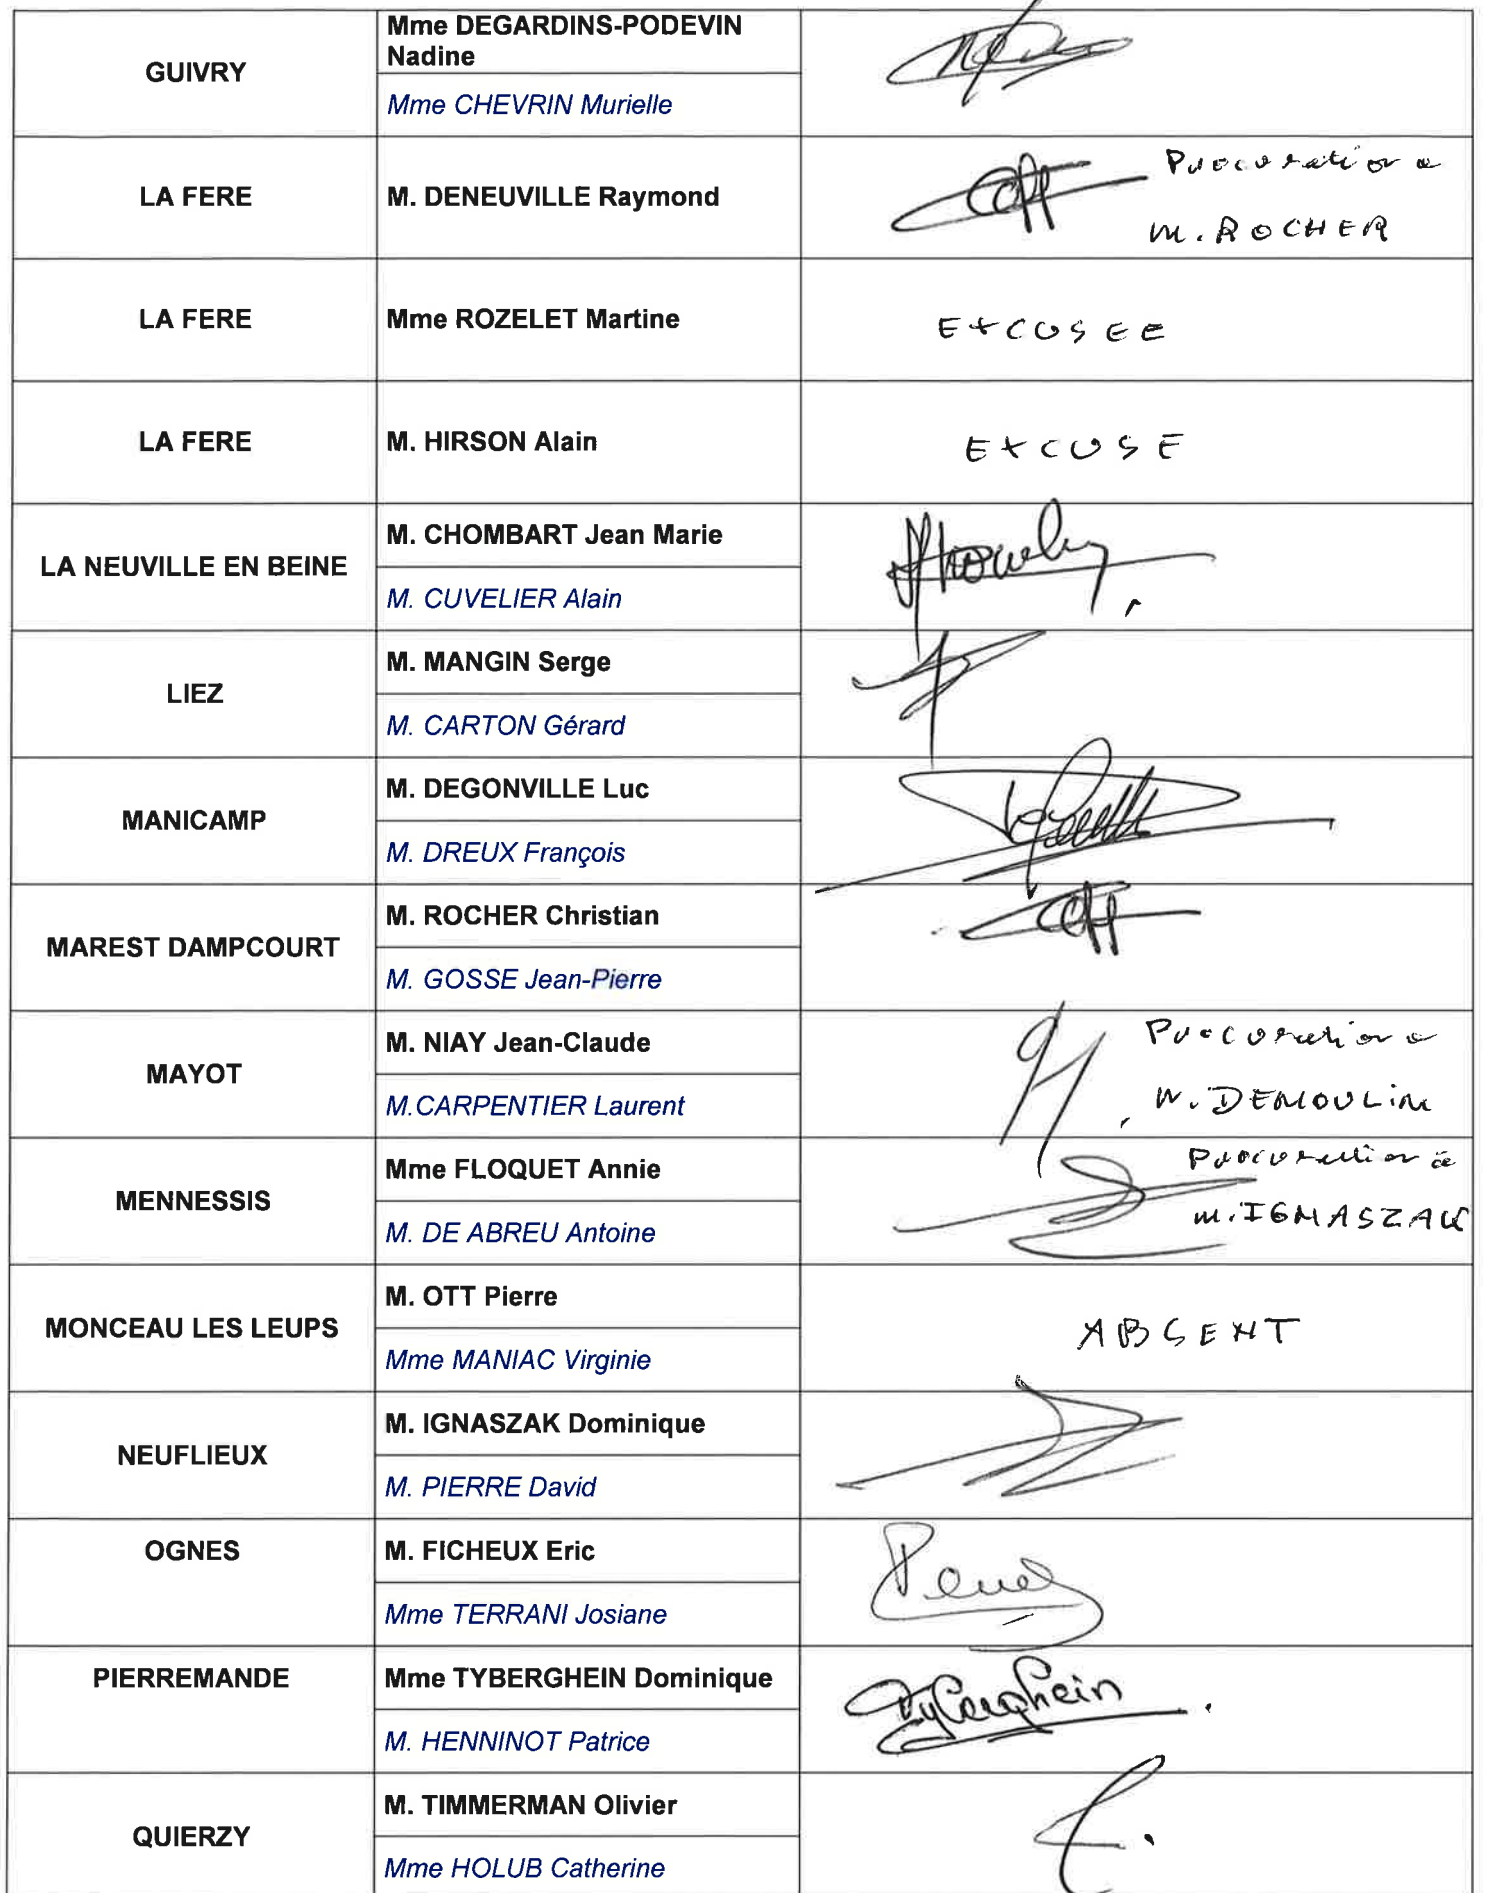 GUIVRY
Mme DEGARDINS-PODEVIN
Nadine
Mme CHEVRIN Murielle
LA FERE
M. DENEUVILLE Raymond
Procuration a
M. ROCHER
LA FERE
Mme ROZELET Martine
EXCUSEE
LA FERE
M. HIRSON Alain
EXCUSE
LA NEUVILLE EN BEINE
M. CHOMBART Jean Marie
M. CUVELIER Alain
LIEZ
M. MANGIN Serge
M. CARTON Gérard
MANICAMP
M. DEGONVILLE Luc
M. DREUX François
MAREST DAMPCOURT
M. ROCHER Christian
M. GOSSE Jean-Pierre
MAYOT
M. NIAY Jean-Claude
M.CARPENTIER Laurent
Procuration a
M. DEMOULIN
MENNESSIS
Mme FLOQUET Annie
M. DE ABREU Antoine
Procuration a
M. IGNASZAK
MONCEAU LES LEUPS
M. OTT Pierre
Mme MANIAC Virginie
ABSENT
NEUFLIEUX
M. IGNASZAK Dominique
M. PIERRE David
OGNES
M. FICHEUX Eric
Mme TERRANI Josiane
PIERREMANDE
Mme TYBERGHEIN Dominique
M. HENNINOT Patrice
Tyberghein
QUIERZY
M. TIMMERMAN Olivier
Mme HOLUB Catherine